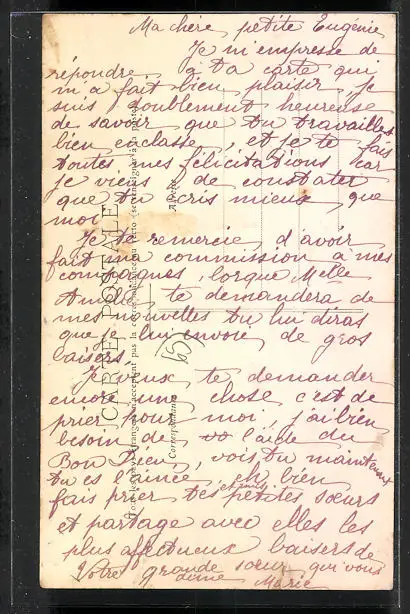 Ma chère petite Eugénie
Je m'empresse de
répondre à ta carte qui
m'a fait bien plaisir, je
suis doublement heureuse
de savoir que tu travailles
bien en classe, et je te fais
toutes mes félicitations car
je viens de constater
que tu écris mieux que
moi
Je te remercie d'avoir
fait ma commission à mes
compagnes, lorque Melle
te demandera de
mes nouvelles tu lui diras
que je lui envoie de gros
baisers
Je veux te demander
encore une chose c'est de
prier pour moi, j'ai bien
besoin de l'aide du
Bon Dieu, vois tu maintenant
tu es l'ainée, eh bien
fais prier tes petites sœurs
et partage avec elles les
plus affectueux baisers de
Votre grande sœur qui vous
aime Marie
CARTE POSTALE
Correspondance
Adresse